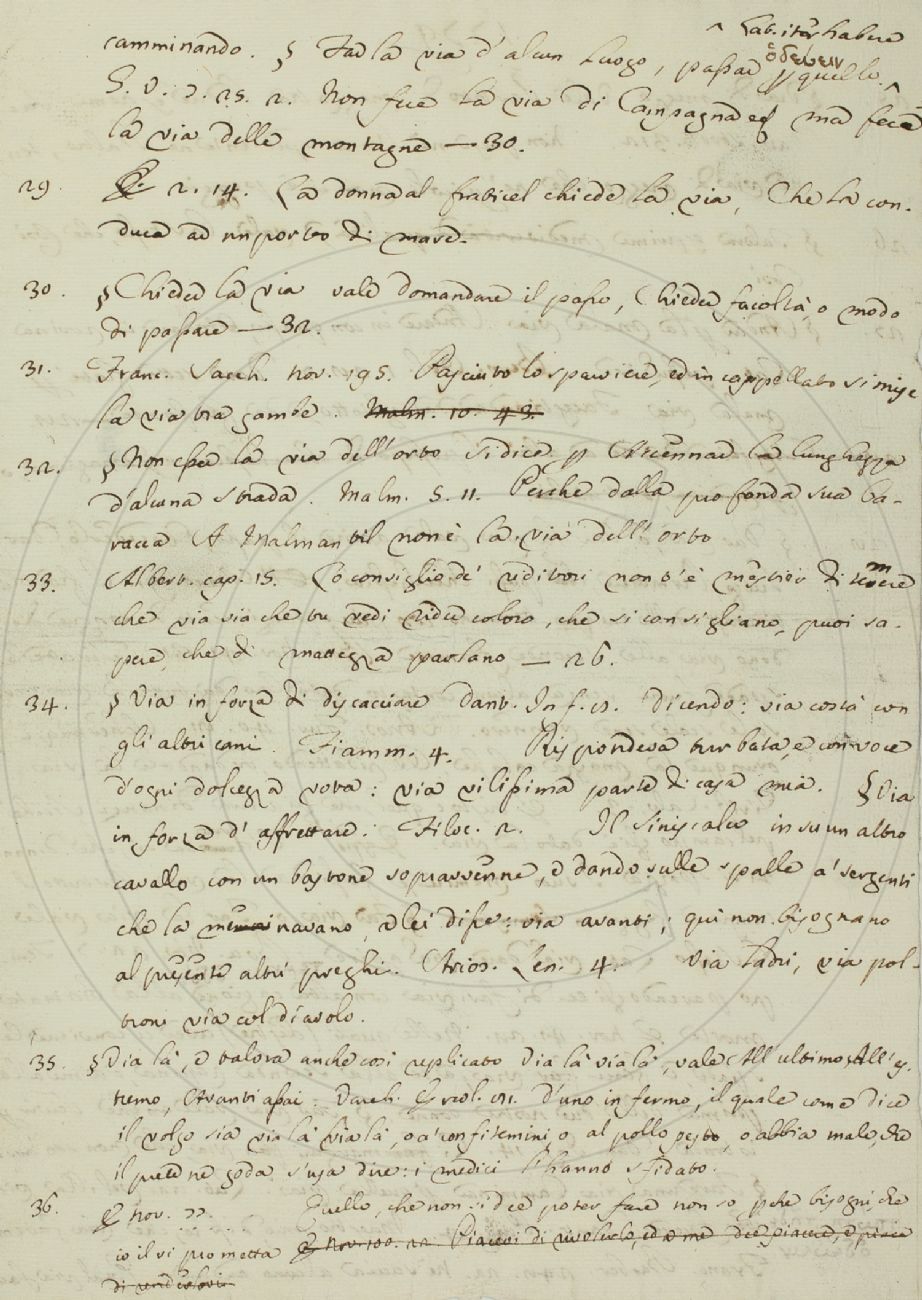 ^ Lat. iter habere
camminando. § Far la via d'alcun luogo, passar ὁδεύειν p quello. ^
G. V. 7. 25. 2. Non fece la via di Campagna ma fece
la via delle montagne — 30.
29. 2. 14. La donna al fraticel chiede la via, Che la con-
duca ad un porto di mare.
30. § Chieder la via vale domandare il passo, Chieder facoltà, o modo
di passare — 32.
31. Franc. Sacch. nov. 195. Pasciuto lo sparviere, ed incappellato si mise
la via tra gambe. Malm. 10. 43.
32. § Non esser la via dell'orto si dice p Accennar la lunghezza
d'alcuna strada. Malm. 5. 11. Perche dalla profonda sua ba-
racca A Malmantil non è la via dell'orto
33. Albert. cap. 15. Lo consiglio de' uditori non t'è mestier di temere
che via via che tu vedi rider coloro, che si consigliano, puoi sa-
pere, che di mattezza parlano — 26.
34. § Via in forza di discacciare Dant. Inf. 8. Dicendo: via costà con
gli altri cani. Fiamm. 4. Rispondeva turbata, e con voce
d'ogni dolcezza vota: via vilissima parte di casa mia. § Via
in forza d'affrettare. Filoc. 2. Il Siniscalco in su un altro
cavallo con un bastone sopravvenne, e dando sulle spalle a' sergenti
che la menavano, e lei disse: via avanti; qui non bisognano
al presente altri preghi. Arios. Len. 4. Via ladri, via pol-
troni via col diavolo.
35. § Via là, e talora anche così replicato Via là via là, vale All'ultimo, All'es-
tremo, Avanti assai. Varch. Ercol. 91. D'uno infermo, il quale come dice
il volgo sia via là via là, o a' confitemini, o al pollo pesto, o abbia male, che
il prete ne goda s'usa dire: i medici l'hanno sfidato.
36. nov. 77. Quello, che non si dee poter fare non so, pche bisogni, che
io il vi prometta nov. 100. 22. Piacesi di